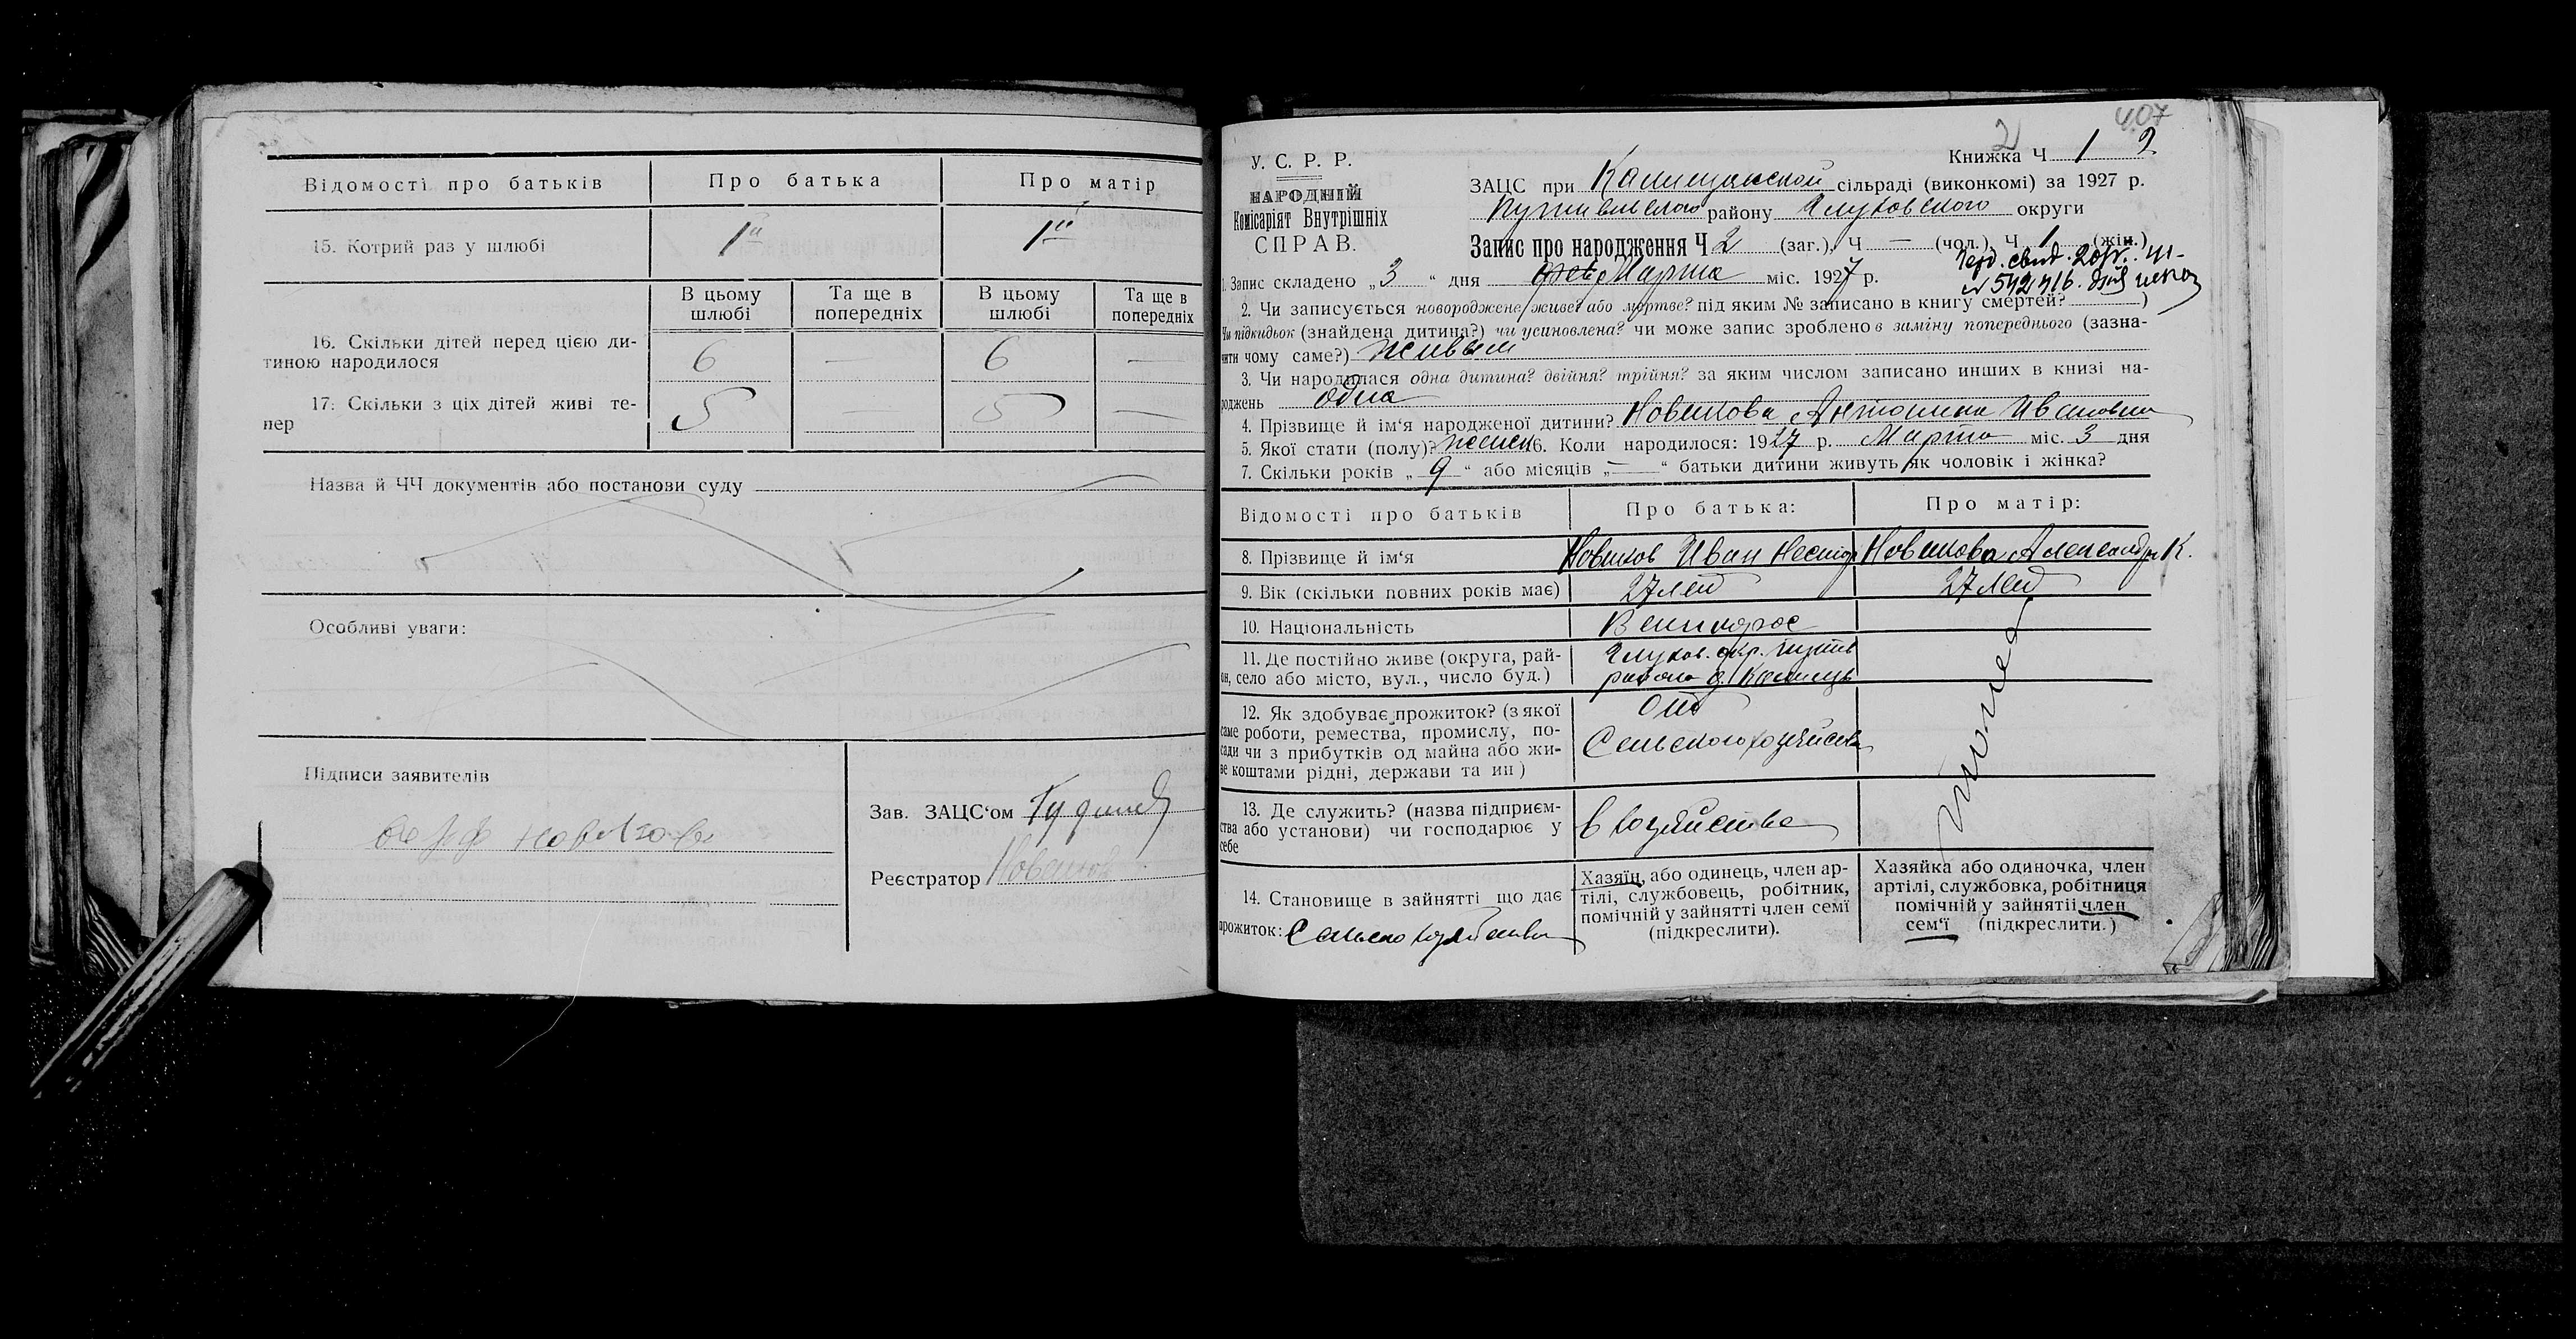 Відомості про батьків Про батька Про матір
15. Котрий раз у шлюбі 1й 1й
В цьому шлюбі Та ще в попередніх В цьому шлюбі Та ще в попередніх
16. Скільки дітей перед цією ди-
тиною народилося 6 — 6 —
17. Скільки з ціх дітей живі те-
пер 5 — 5 —
Назва й ЧЧ документів або постанови суду
Особливі уваги:
Підписи заявителів
Зав. ЗАЦС‘ом
Реєстратор Новиков
407
2
У. С. Р. Р.
НАРОДНІЙ
Комісаріят Внутрішніх
СПРАВ.
Книжка Ч 1 2
ЗАЦС при сільраді (виконкомі) за 1927 р.
Путивльского району Глуховского округи
Запис про народження Ч 2 (заг.), Ч — (чол.), Ч 1 (жін.)
1. Запис складено „3“ дня Марта міс. 1927 р.
№ 542716
2. Чи записується новороджене живе? або мертве? під яким № записано в книгу смертей? )
Чи підкидьок (знайдена дитина?) чи усиновлена? чи може запис зроблено в заміну попереднього (зазна-
чити чому саме?) живым
3. Чи народилася одна дитина? двійня? трійня? за яким числом записано инших в книзі на-
роджень одна
4. Прізвище й ім‘я народженої дитини? Новикова Антонина Ивановна
5. Якої стати (полу)? женск 6. Коли народилося: 1927 р. Марта міс. 3 дня
7. Скільки років „9“ або місяців „—“ батьки дитини живуть як чоловік і жінка?
Відомості про батьків Про батька: Про матір:
8. Прізвище й ім‘я Новиков Иван Нестор Новикова Александра К.
9. Вік (скільки повних років має) 27 лет 27 лет
10. Національність Великорос
11. Де постійно живе (округа, рай-
он, село або місто, вул., число буд.) Глухов. окр. Путив
района
12. Як здобуває прожиток? (з якої
саме роботи, ремества, промислу, по-
сади чи з прибутків од майна або жи-
ве коштами рідні, держави та ин) От
Сельского хозяйства
13. Де служить? (назва підприєм-
ства або установи) чи господарює у
себе в хозяйстве
14. Становище в зайнятті що дає
прожиток: Сельско хозяйства
Хазяїн, або одинець, член ар-
тілі, службовець, робітник,
помічній у зайнятті член семї
(підкреслити).
Хазяйка або одиночка, член
артілі, службовка, робітниця
помічній у зайнятії член
сем‘ї (підкреслити.)